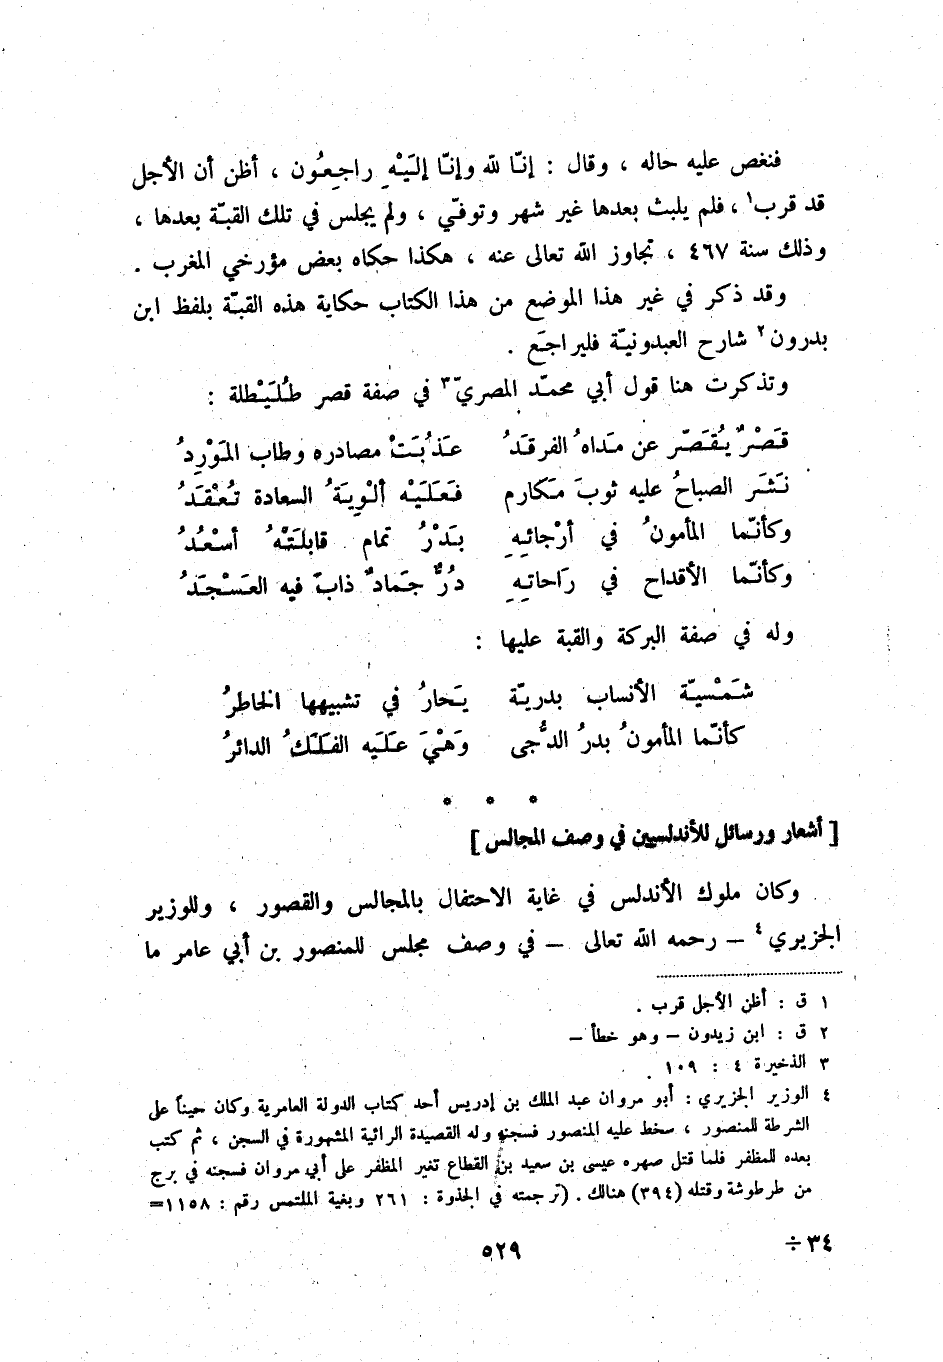 فنغص عليه حاله ، وقال : إنّا لله وإنّا إلَيْهِ راجِعُون ، أظن أن الأجل
قد قرب١ ، فلم يلبث بعدها غير شهر وتوفّي ، ولم يجلس في تلك القبّة بعدها ،
وذلك سنة ٤٦٧ ، تجاوز الله تعالى عنه ، هكذا حكاه بعض مؤرخي المغرب .
وقد ذكر في غير هذا الموضع من هذا الكتاب حكاية هذه القبّة بلفظ ابن
بدرون٢ شارح العبدونيّة فليراجَع .
وتذكرت هنا قول أبي محمّد المصريّ٣ في صفة قصر طُلَيْطلة :
قَصْرٌ يُقَصّر عن مَداهُ الفرقَدُ عَذُبَتْ مصادره وطاب المَوْرِدُ
نَشَر الصباحُ عليه ثوبَ مَكارم فَعَلَيْه ألْوِيَةُ السعادة تُعْقَدُ
وكأنّما المأمونُ في أرْجائِهِ بَدْرُ تمام قابلَتْهُ أسْعُدُ
وكأنّما الأقداح في رَاحاتِهِ دُرٌّ جَمادٌ ذابَ فيه العَسْجَدُ
وله في صفة البركة والقبة عليها :
شَمْسيّة الأنساب بدريّة يَحارُ في تشبيهها الخاطرُ
كأنّما المأمونُ بدرُ الدُّجى وَهْيَ عَلَيه الفَلَكُ الدائرُ
* * *
[ أشعار ورسائل للأندلسيين في وصف المجالس ]
وكان ملوك الأندلس في غاية الاحتفال بالمجالس والقصور ، وللوزير
الجزيري٤ – رحمه الله تعالى – في وصف مجلس للمنصور بن أبي عامر ما
١ ق : أظن الأجل قرب .
٢ ق : ابن زيدون – وهو خطأ –
٣ الذخيرة ٤ : ١٠٩ .
٤ الوزير الجزيري : أبو مروان عبد الملك بن إدريس أحد كتاب الدولة العامرية وكان حيناً على
الشرطة للمنصور ، سخط عليه المنصور فسجنه وله القصيدة الرائية المشهورة في السجن ، ثم كتب
بعده للمظفر فلما قتل صهره عيسى بن سعيد بن القطاع تغير المظفر على أبي مروان فسجنه في برج
من طرطوشة وقتله (٣٩٤) هنالك . (ترجمته في الجذوة : ٢٦١ وبغية الملتمس رقم : ١١٥٨=
٣٤÷
٥٢٩